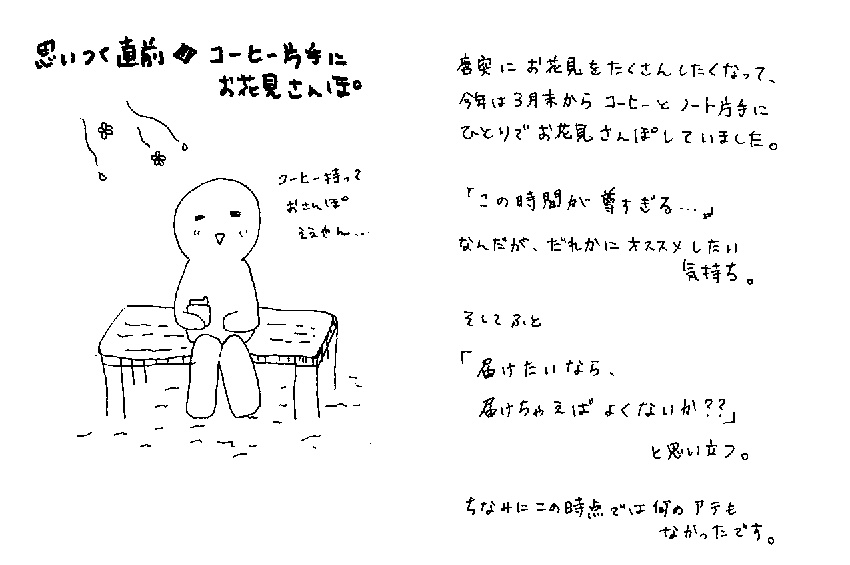 思いつく直前 コーヒー片手に
お花見さんぽ。
コーヒー持って
おさんぽ
ええやん...
唐突に お花見をたくさんしたくなって、
今年は3月末から コーヒーとノート片手に
ひとりで お花見さんぽしていました。
「この時間が 尊すぎる...」
なんだが、だれかに オススメしたい
気持ち。
そしてふと
「届けたいなら、
届けちゃえば よくないか??」
と思い立つ。
ちなみに この時点では 何の アテも
なかったです。